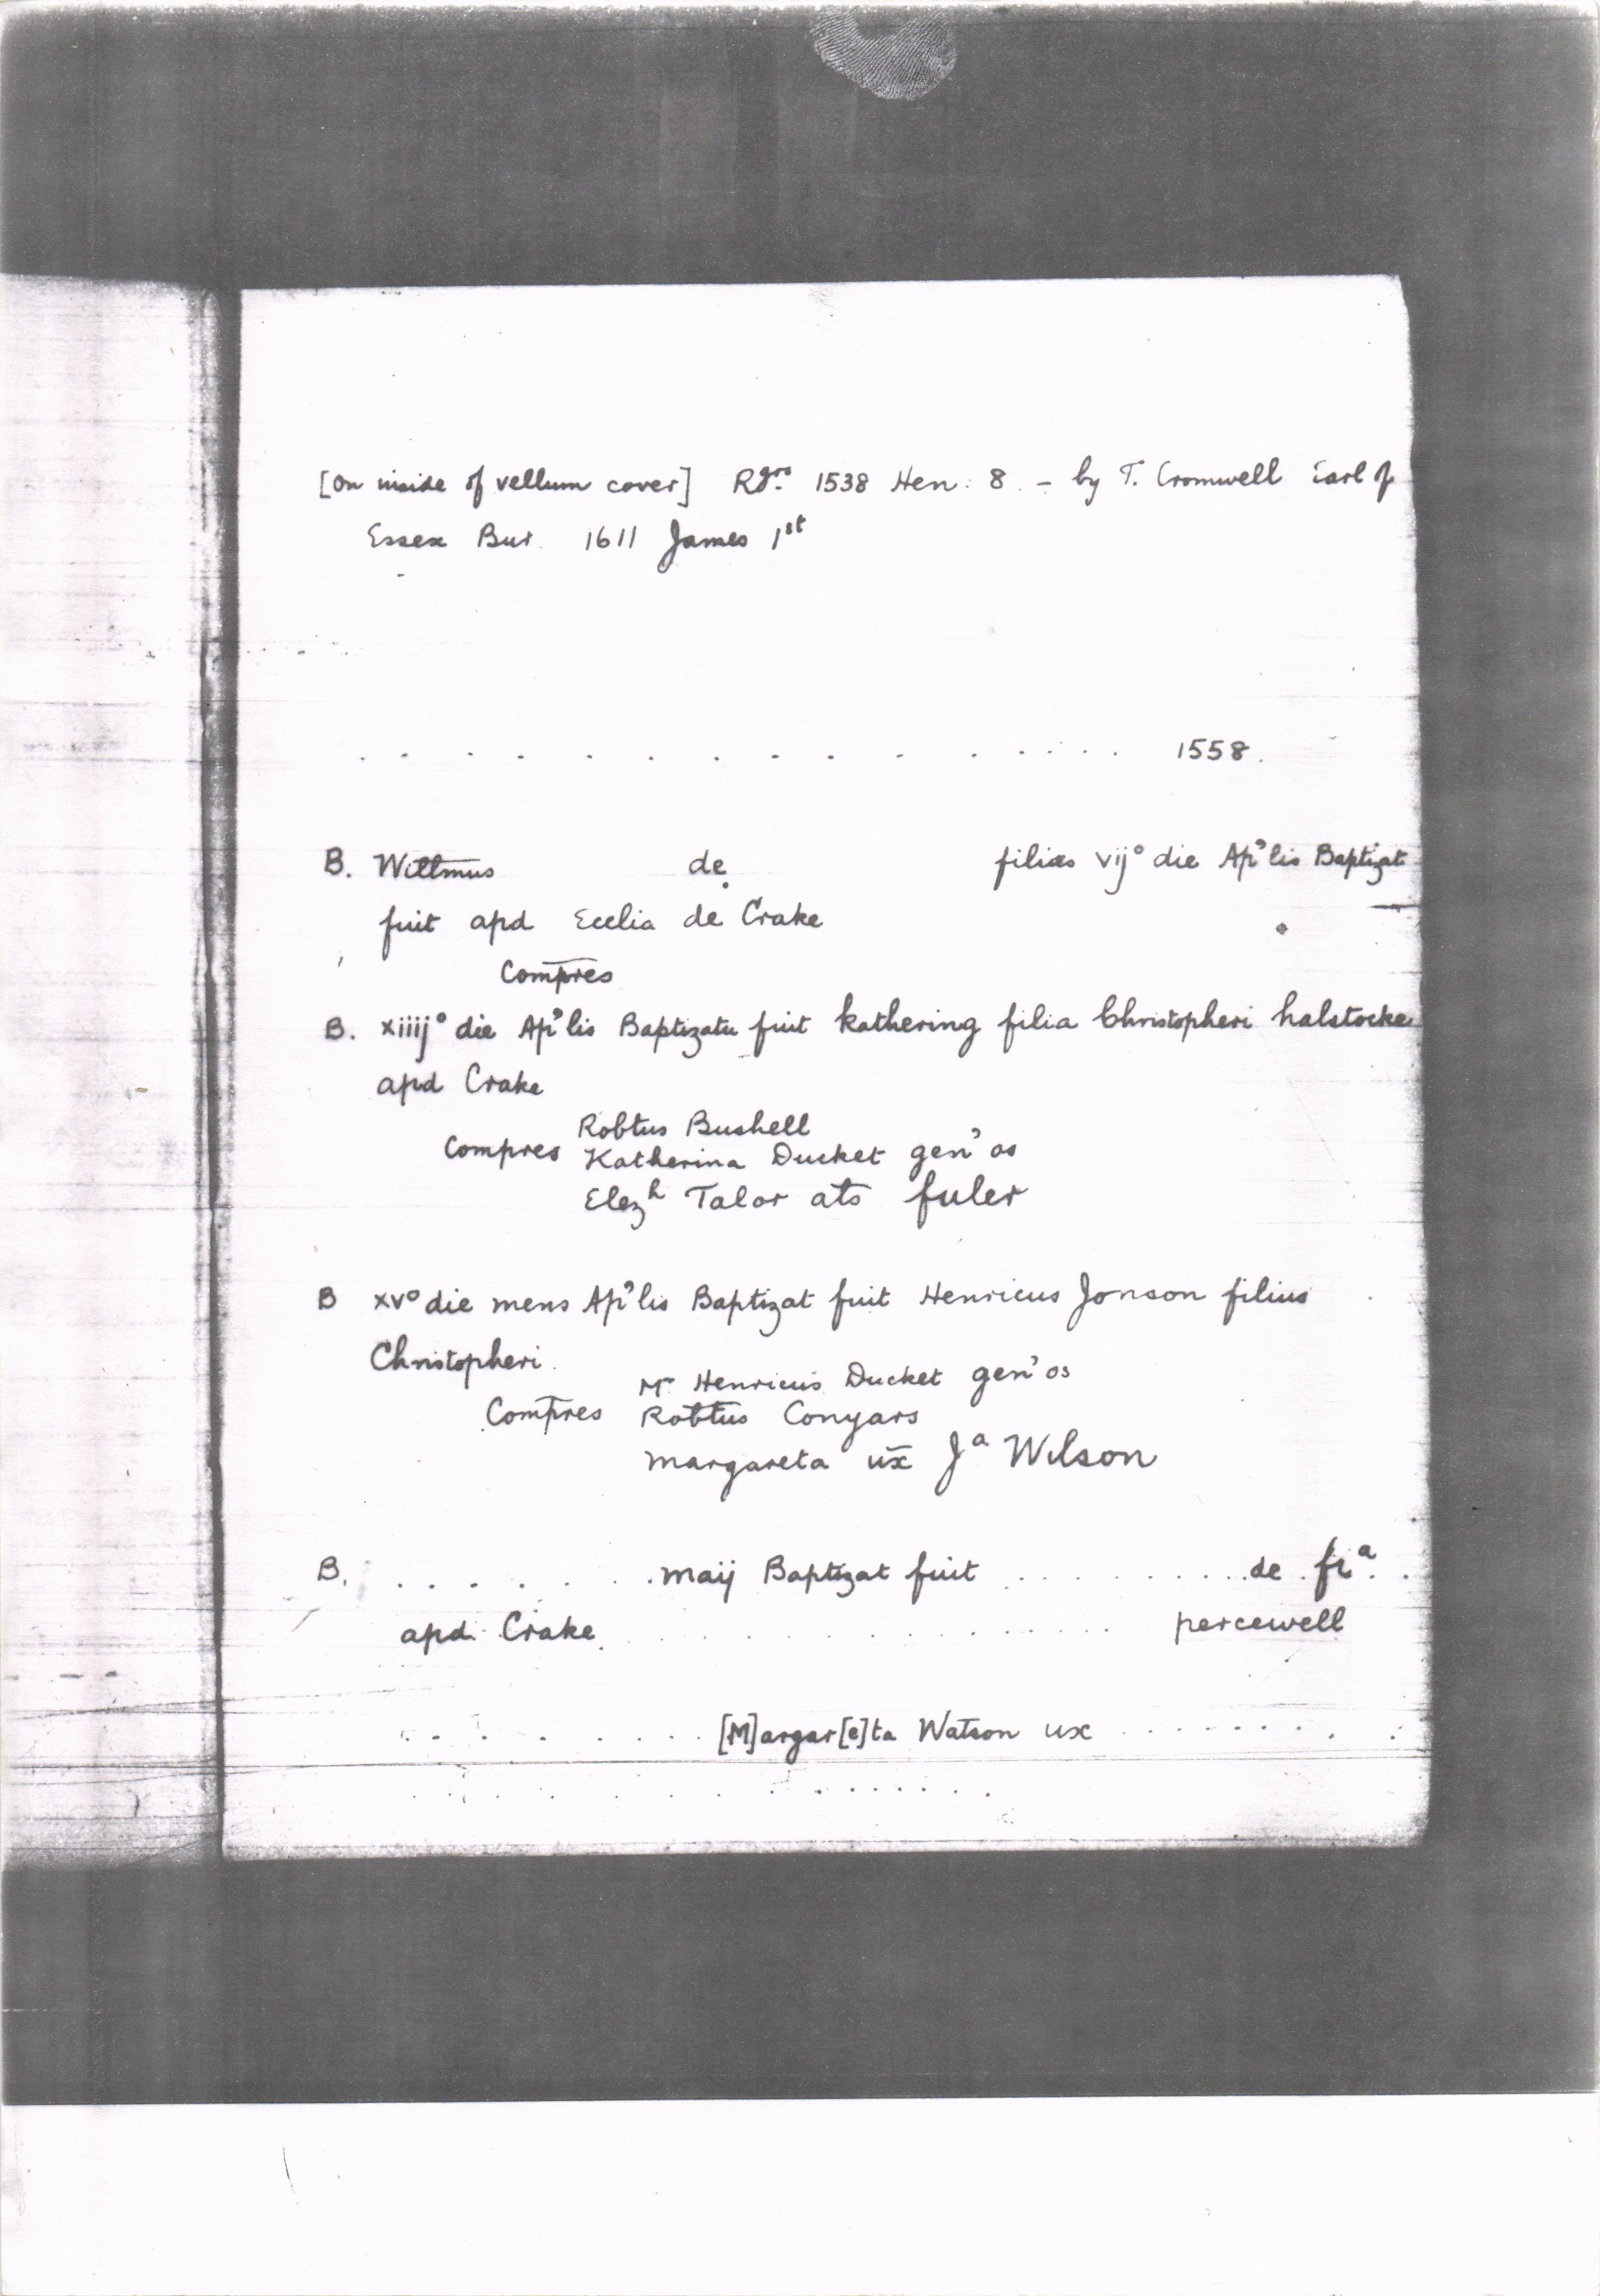 [On inside of vellum cover] Rgrs. 1538 Hen: 8 - by T. Cromwell Earl of
Essex Bur. 1611 James 1st
. . . . . . . . . . . . . . . 1558.
B. Willmus de filius vijº die Ap'lis Baptizat
fuit apd Ecclia de Crake
Compres
B. xiiijº die Ap'lis Baptizatu fuit kathering filia Christopheri halstocke
apd Crake
Robtus Bushell
Compres Katherina Ducket gen'os
Elezh Talor als fuler
B xvº die mens Ap'lis Baptizat fuit Henricus Jonson filius
Christopheri.
Mr Henricus Ducket gen'os
Compres Robtus Conyars
margareta ux Ja Wilson
B. . . . . . . . maij Baptizat fuit . . . . . . . . . de fra. .
apd Crake. . . . . . . . . . . . . . . . . percewell
. . . . . . . . [M]argar[e]ta Watson ux . . . . . . . . . .
. . . . . . . . . . . . . .